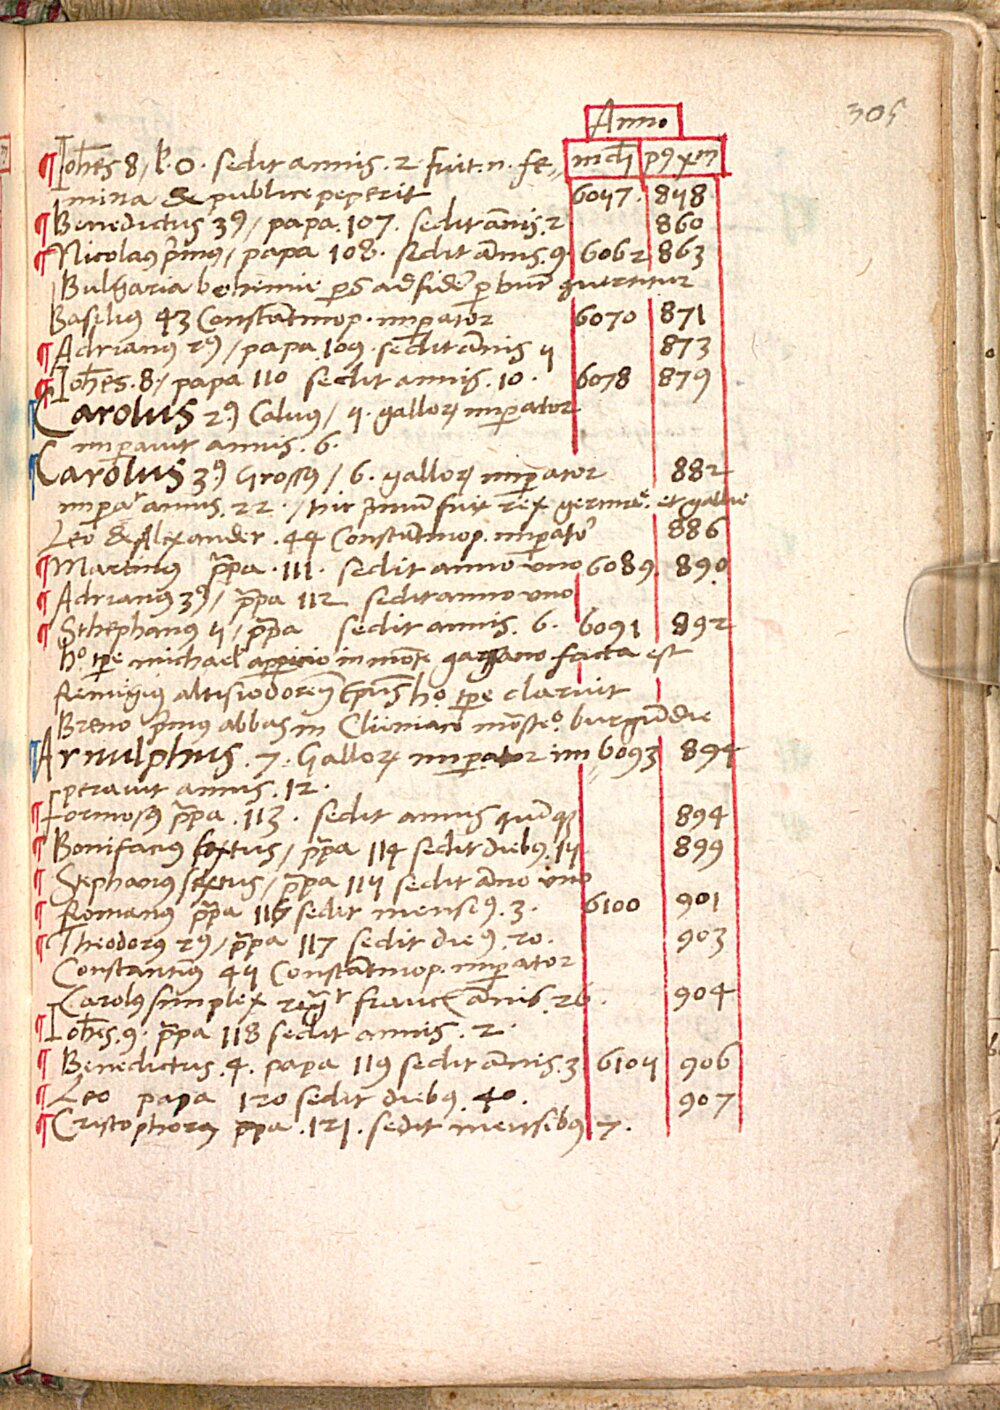 305
Anno
¶ Iohēs 8 / ꝑ. 0. sedit annis. 2 fuit. n. fe⸗ mūdi p9 xp̄m
mina & publice peperit 6057. 858
¶ Benedictus 39 / papa. 107. sedit ānis. 2 860
¶ Nicolaus p̄mus / papa 108. sedit ānis. 9 6062 863
Bulgaria bohimie ad fidē p hūc
Basilius 43 Constātinop. imꝑator 6070 871
¶ Adrianus 29 / papa 109. sedit ānis 5 873
¶ Iohēs. 8 / papa 110 sedit annis. 10. 6078 879
Carolus 29 Calvus / 5. galloꝝ imꝑator
imꝑavit annis. 6.
Carolus 39 Grossus / 6. galloꝝ imꝑator 882
imꝑaʳ annis. 22. / hic p̄mū fuit rex germāe et gallie
Leo & Alexander. 44 Constātinop. imꝑatoʳ 886
¶ Martinus p̄pa. 111. sedit anno uno 6089 890
¶ Adrianus 39 / p̄pa 112 sedit anno uno
¶ Sthephanus 5 / p̄pa sedit annis. 6. 6091 892
ho. tp̄e michael apparicio in mōte gargano facta est
Remigius altisiodorēn̄ ep̄us ho. tp̄e claruit
Breno p̄mus abbas in Cluniacō mōsteo. burgūdie
Arnulphus. 7. Galloꝝ imꝑator im⸗ 6093 894
peravit annis. 12.
¶ Formosus p̄pa. 113. sedit annis quīqꝫ 894
¶ Bonifacius sextus / p̄pa 114 sedit diebus. 15 899
¶ Stephanus sextus / p̄pa 115 sedit āno uno
¶ Romanus p̄pa 116 sedit mensibꝰ. 3. 6100 901
¶ Theodorus 29 / p̄pa 117 sedit diebꝰ. 20. 903
Constantinus 45 Constātinop. imꝑator
Carolus simplex regʳ francē ānis. 26. 904
¶ Iohēs. 9. p̄pa 118 sedit annis. 2.
¶ Benedictus. 4. papa 119 sedit ānis. 3 6105 906
¶ Leo papa 120 sedit diebus. 40. 907
¶ Cristophorus p̄pa. 121. sedit mensibus 7.